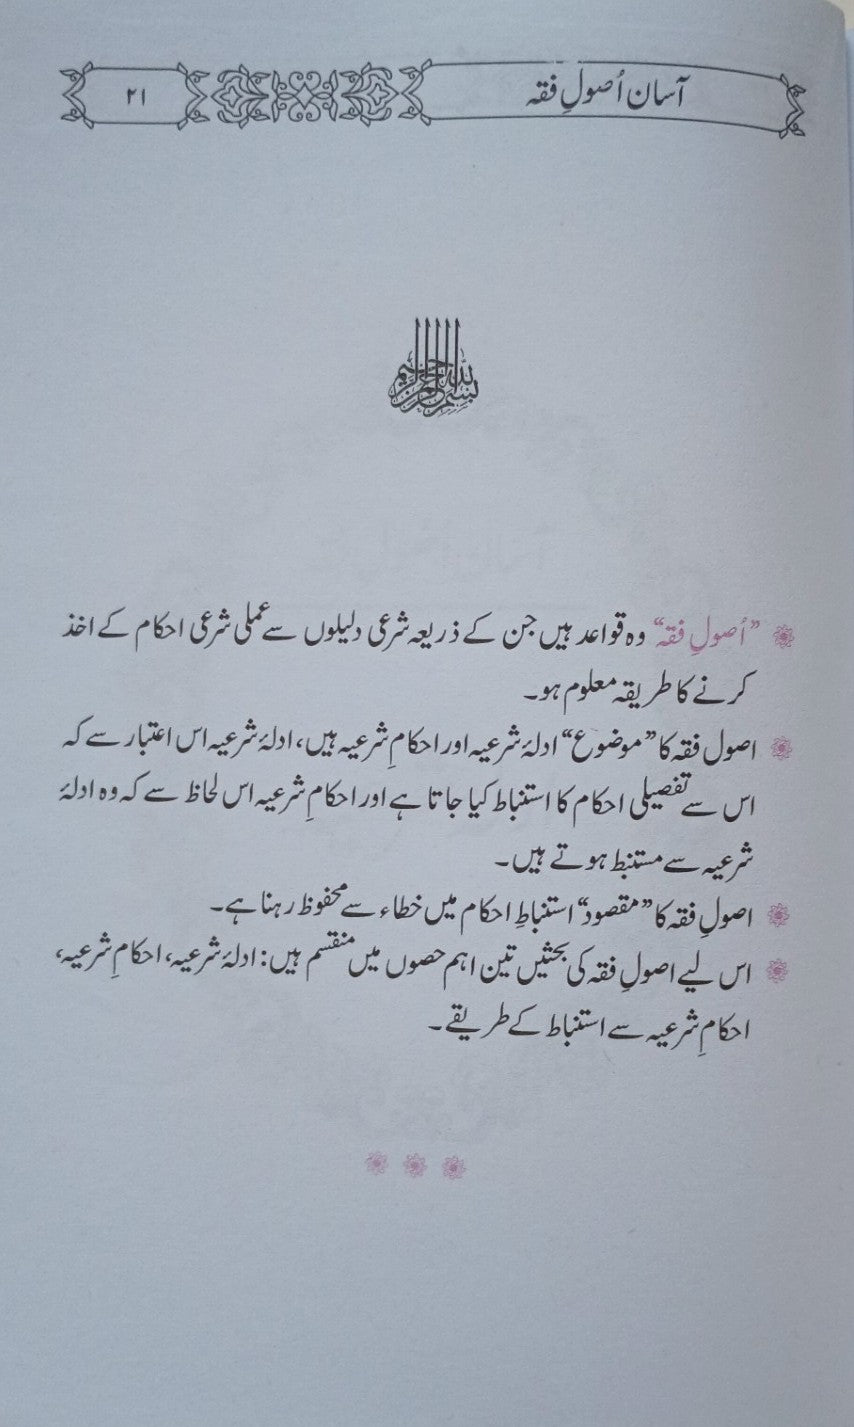 آسان اُصولِ فقہ
۲۱
بسم اللہ الرحمن الرحیم
”اُصولِ فقہ“ وہ قواعد ہیں جن کے ذریعہ شرعی دلیلوں سے عملی شرعی احکام کے اخذ
کرنے کا طریقہ معلوم ہو۔
اصول فقہ کا ”موضوع“ ادلۂ شرعیہ اور احکامِ شرعیہ ہیں، ادلۂ شرعیہ اس اعتبار سے کہ
اس سے تفصیلی احکام کا استنباط کیا جاتا ہے اور احکامِ شرعیہ اس لحاظ سے کہ وہ ادلۂ
شرعیہ سے مستنبط ہوتے ہیں۔
اصولِ فقہ کا ”مقصود“ استنباطِ احکام میں خطاء سے محفوظ رہنا ہے۔
اس لیے اصولِ فقہ کی بحثیں تین اہم حصوں میں منقسم ہیں: ادلۂ شرعیہ، احکامِ شرعیہ،
احکامِ شرعیہ سے استنباط کے طریقے۔